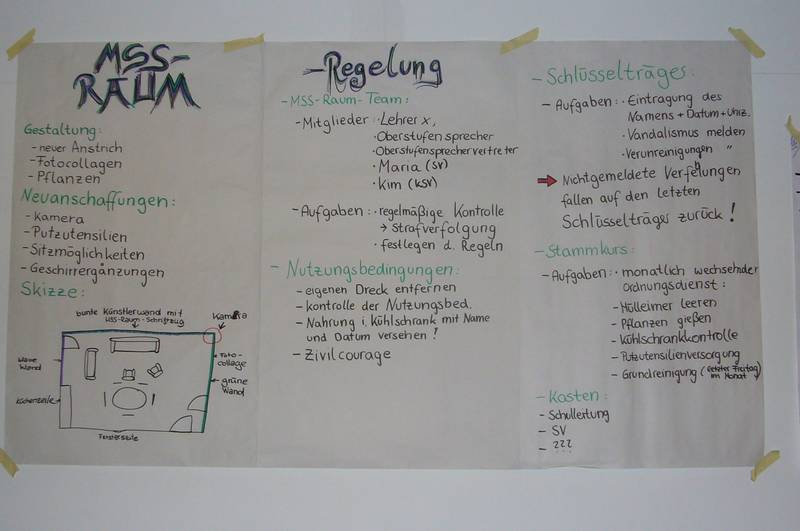 MSS-
RAUM
Gestaltung:
- neuer Anstrich
- Fotocollagen
- Pflanzen
Neuanschaffungen:
- Kamera
- Putzutensilien
- Sitzmöglichkeiten
- Geschirrergänzungen
Skizze:
bunte Künstlerwand mit
MSS-Raum-Schriftzug
Kamera
Wand
Foto-
collage
grüne
Wand
Küchenzeile
Fensterseite
- Regelung
- MSS-Raum-Team:
- Mitglieder: · Lehrer x,
· Oberstufensprecher
· Oberstufensprechervertreter
· Maria (SV)
· Kim (KSV)
- Aufgaben: · regelmäßige Kontrolle
→ Strafverfolgung
· festlegen d. Regeln
- Nutzungsbedingungen:
- eigenen Dreck entfernen
- kontrolle der Nutzungsbed.
- Nahrung i. Kühlschrank mit Name
und Datum versehen!
- Zivilcourage
- Schlüsselträges:
- Aufgaben: · Eintragung des
Namens + Datum + Uhrz.
· Vandalismus melden
· Verunreinigungen "
→ Nichtgemeldete Verfehlungen
fallen auf den letzten
Schlüsselträges zurück!
- Stammkurs:
- Aufgaben: · monatlich wechselnder
Ordnungsdienst:
- Mülleimer leeren
- Pflanzen gießen
- Kühlschrankkontrolle
- Putzutensilienversorgung
- Grundreinigung (letzter Freitag
im Monat)
- Kosten:
- Schulleitung
- SV
- ???